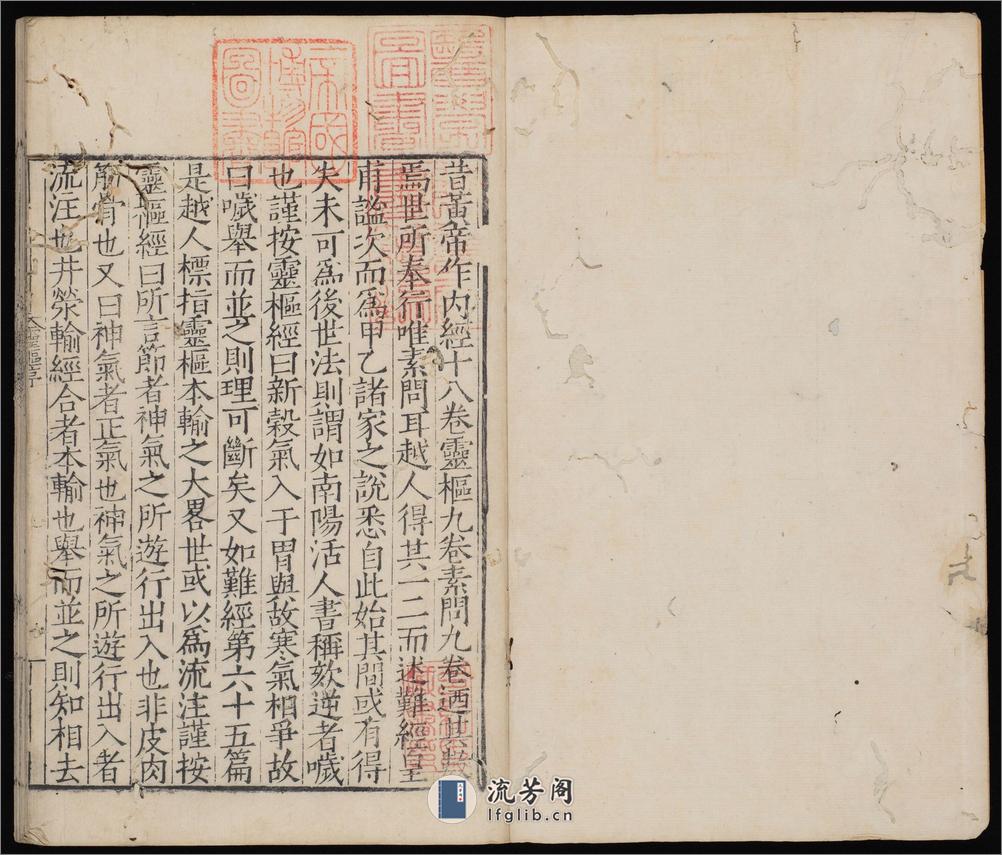 昔黃帝作内經十八卷靈樞九卷素問九卷廼其數
焉世所奉行唯素問耳越人得其一二而述難經皇
甫謐次而爲甲乙諸家之說悉自此始其間或有得
失未可爲後世法則謂如南陽活人書稱欬逆者噦
也謹按靈樞經曰新穀氣入于胃與故寒氣相爭故
曰噦舉而並之則理可斷矣又如難經第六十五篇
是越人標指靈樞本輸之大畧世或以爲流注謹按
靈樞經曰所言節者神氣之所遊行出入也非皮肉
筋骨也又曰神氣者正氣也神氣之所遊行出入者
流注也井滎輸經合者本輸也舉而並之則知相去
靈樞序
流芳阁
lfglib.cn